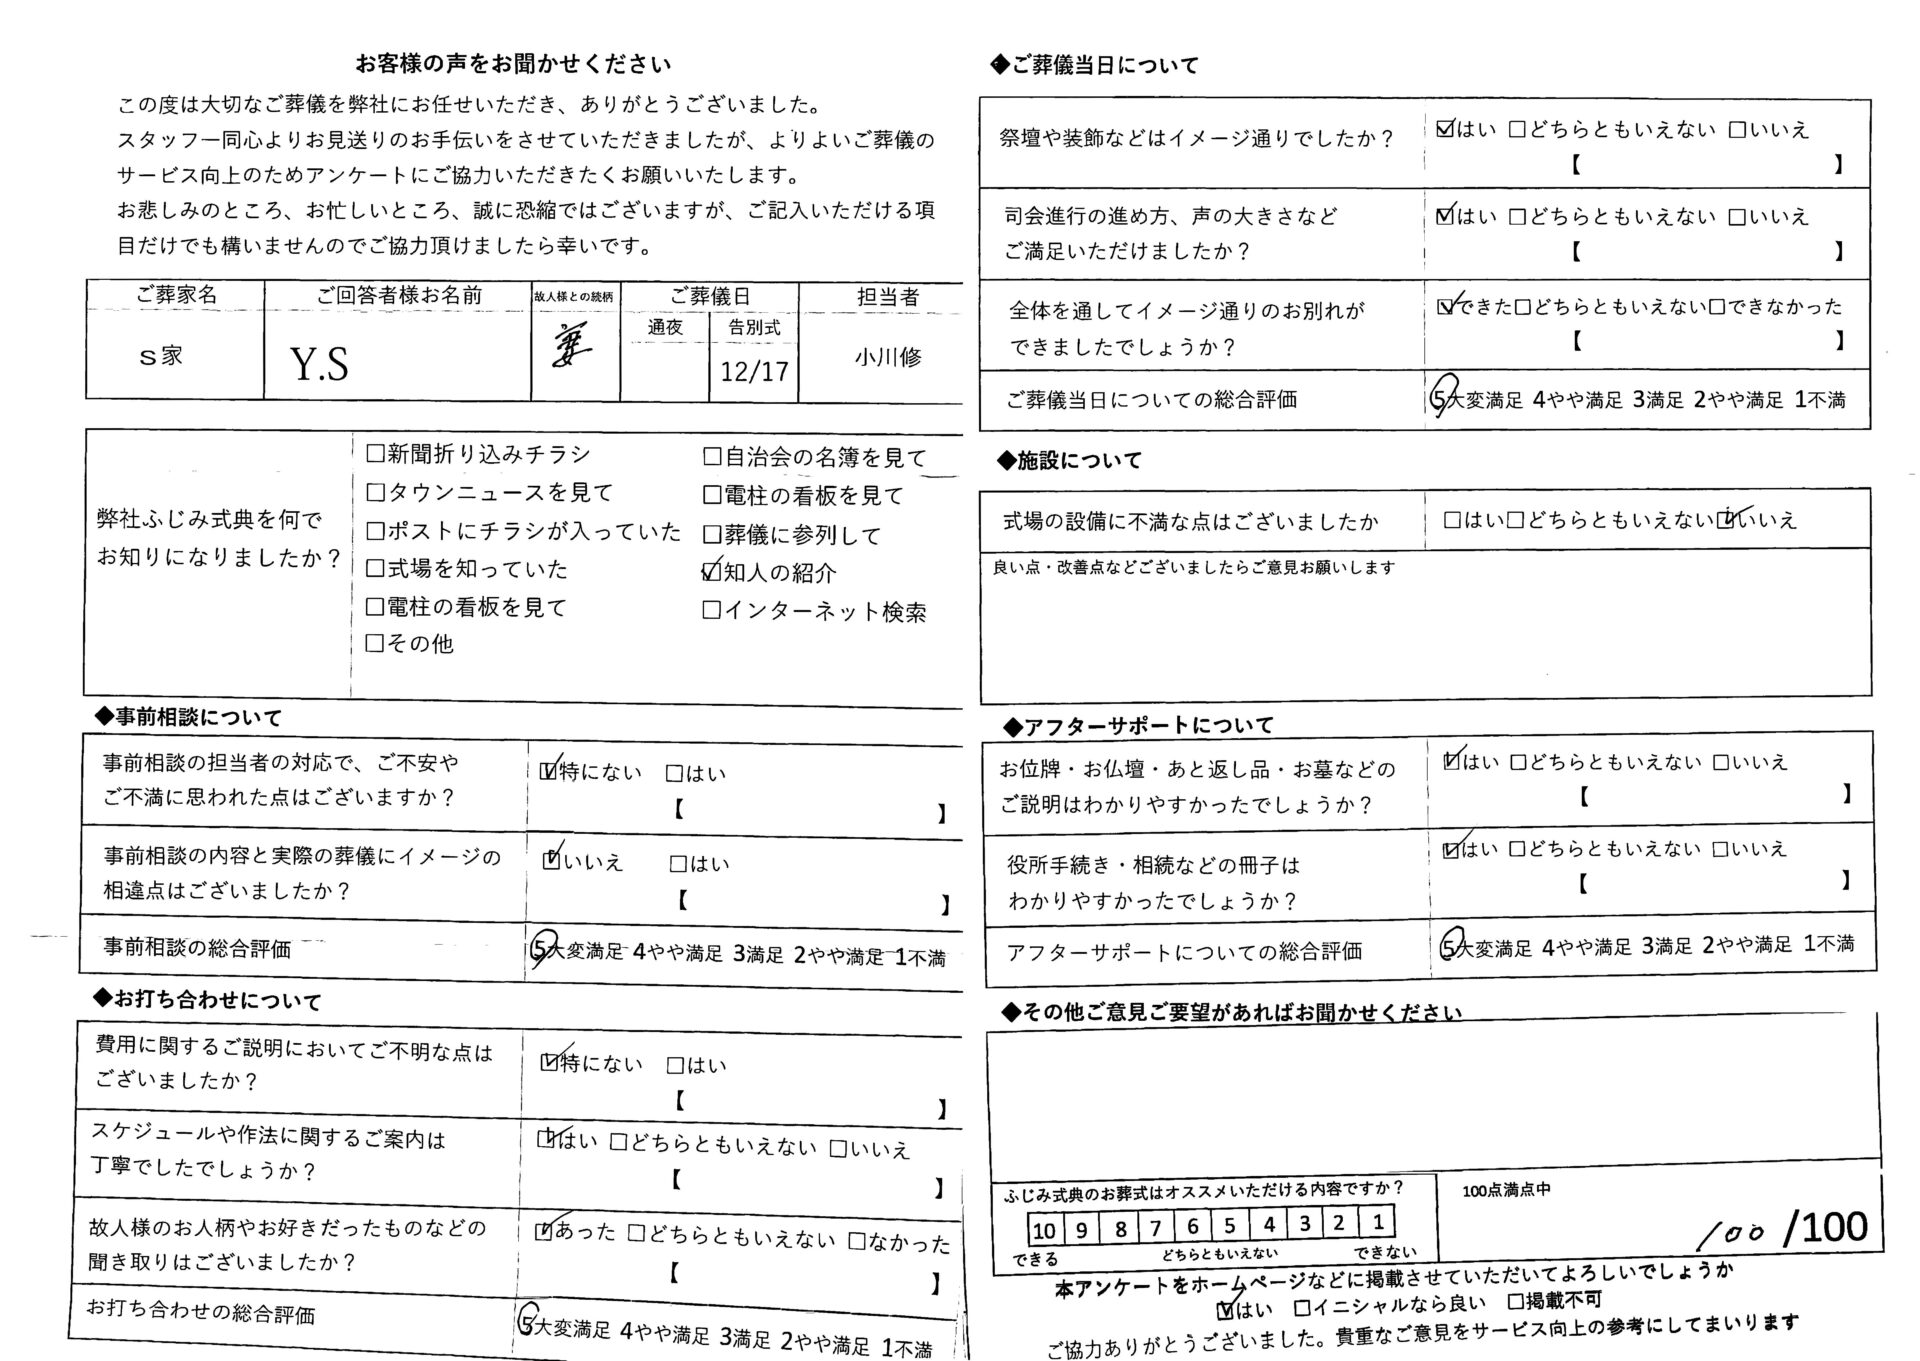 お客様の声をお聞かせください
この度は大切なご葬儀を弊社にお任せいただき、ありがとうございました。
スタッフ一同心よりお見送りのお手伝いをさせていただきましたが、よりよいご葬儀の
サービス向上のためアンケートにご協力いただきたくお願いいたします。
お悲しみのところ、お忙しいところ、誠に恐縮ではございますが、ご記入いただける項
目だけでも構いませんのでご協力頂けましたら幸いです。
ご葬家名 ご回答者様お名前 故人様との続柄 ご葬儀日 担当者
通夜 告別式
s家 Y.S 妻 12/17 小川修
弊社ふじみ式典を何で
お知りになりましたか？
□新聞折り込みチラシ
□タウンニュースを見て
□ポストにチラシが入っていた
□式場を知っていた
□電柱の看板を見て
□その他
□自治会の名簿を見て
□電柱の看板を見て
□葬儀に参列して
☑知人の紹介
□インターネット検索
◆事前相談について
事前相談の担当者の対応で、ご不安や
ご不満に思われた点はございますか？
☑特にない □はい
【 】
事前相談の内容と実際の葬儀にイメージの
相違点はございましたか？
☑いいえ □はい
【 】
事前相談の総合評価 5大変満足 4やや満足 3満足 2やや満足 1不満
◆お打ち合わせについて
費用に関するご説明においてご不明な点は
ございましたか？
☑特にない □はい
【 】
スケジュールや作法に関するご案内は
丁寧でしたでしょうか？
☑はい □どちらともいえない □いいえ
【 】
故人様のお人柄やお好きだったものなどの
聞き取りはございましたか？
☑あった □どちらともいえない □なかった
【 】
お打ち合わせの総合評価 5大変満足 4やや満足 3満足 2やや満足 1不満
◆ご葬儀当日について
祭壇や装飾などはイメージ通りでしたか？
☑はい □どちらともいえない □いいえ
【 】
司会進行の進め方、声の大きさなど
ご満足いただけましたか？
☑はい □どちらともいえない □いいえ
【 】
全体を通してイメージ通りのお別れが
できましたでしょうか？
☑できた□どちらともいえない□できなかった
【 】
ご葬儀当日についての総合評価 5大変満足 4やや満足 3満足 2やや満足 1不満
◆施設について
式場の設備に不満な点はございましたか □はい□どちらともいえない☑いいえ
良い点・改善点などございましたらご意見お願いします
◆アフターサポートについて
お位牌・お仏壇・あと返し品・お墓などの
ご説明はわかりやすかったでしょうか？
☑はい □どちらともいえない □いいえ
【 】
役所手続き・相続などの冊子は
わかりやすかったでしょうか？
☑はい □どちらともいえない □いいえ
【 】
アフターサポートについての総合評価 5大変満足 4やや満足 3満足 2やや満足 1不満
◆その他ご意見ご要望があればお聞かせください
ふじみ式典のお葬式はオススメいただける内容ですか？
10 9 8 7 6 5 4 3 2 1
できる どちらともいえない できない
100点満点中
100 /100
本アンケートをホームページなどに掲載させていただいてよろしいでしょうか
☑はい □イニシャルなら良い □掲載不可
ご協力ありがとうございました。貴重なご意見をサービス向上の参考にしてまいります